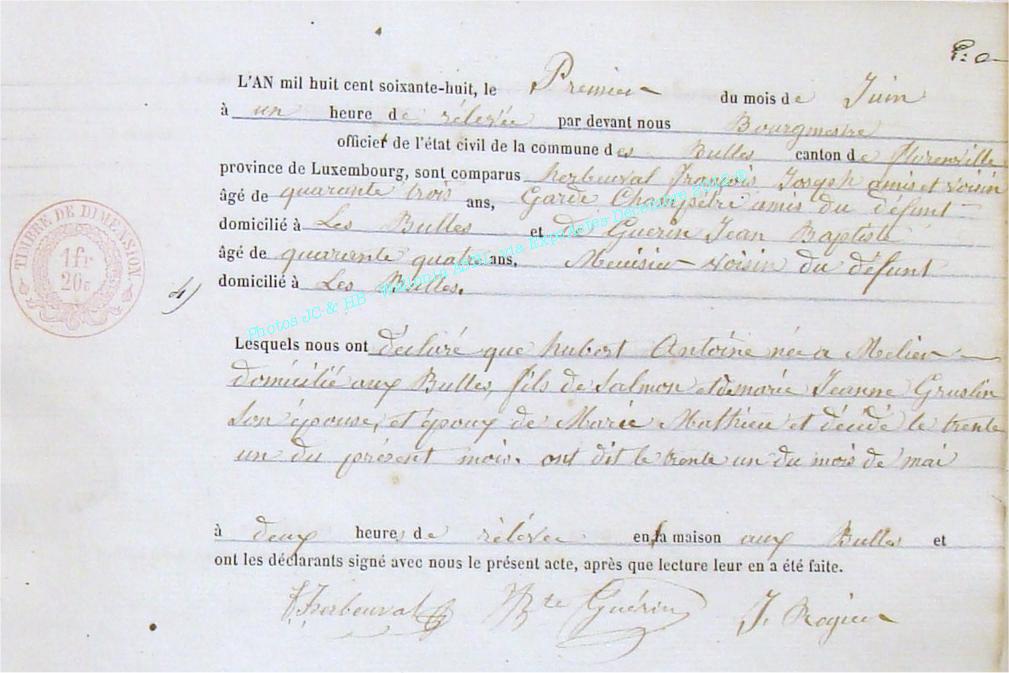 L'AN mil huit cent soixante-huit, le Premier du mois de Juin
à un heure de rélevée par devant nous Bourgmestre
officier de l'état civil de la commune des Bulles canton de florenville
province de Luxembourg, sont comparus herbeuval françois Joseph amis et voisin
âgé de quarante trois ans, Garde Champêtre amis du défunt
domicilié à Les Bulles et de Guerin Jean Baptiste
âgé de quarante quatre ans, Menisier voisin du défunt
4) domicilié à Les Bulles.
TIMBRE DE DIMENSION
1fr
20c
Photos JC & HB
Lesquels nous ont déclaré que hubert Antoine né a Melier
domicilié aux Bulles, fils de Salmon et de marie Jeanne Gruslin
Son épouse, et époux de Marie Mathieu et décédé le trente
un du présent mois. ont dit le trente un du mois de mai
à deux heures de rélevée en sa maison aux Bulles et
ont les déclarants signé avec nous le présent acte, après que lecture leur en a été faite.
Herbeuval Bte Guérin J. Rogier